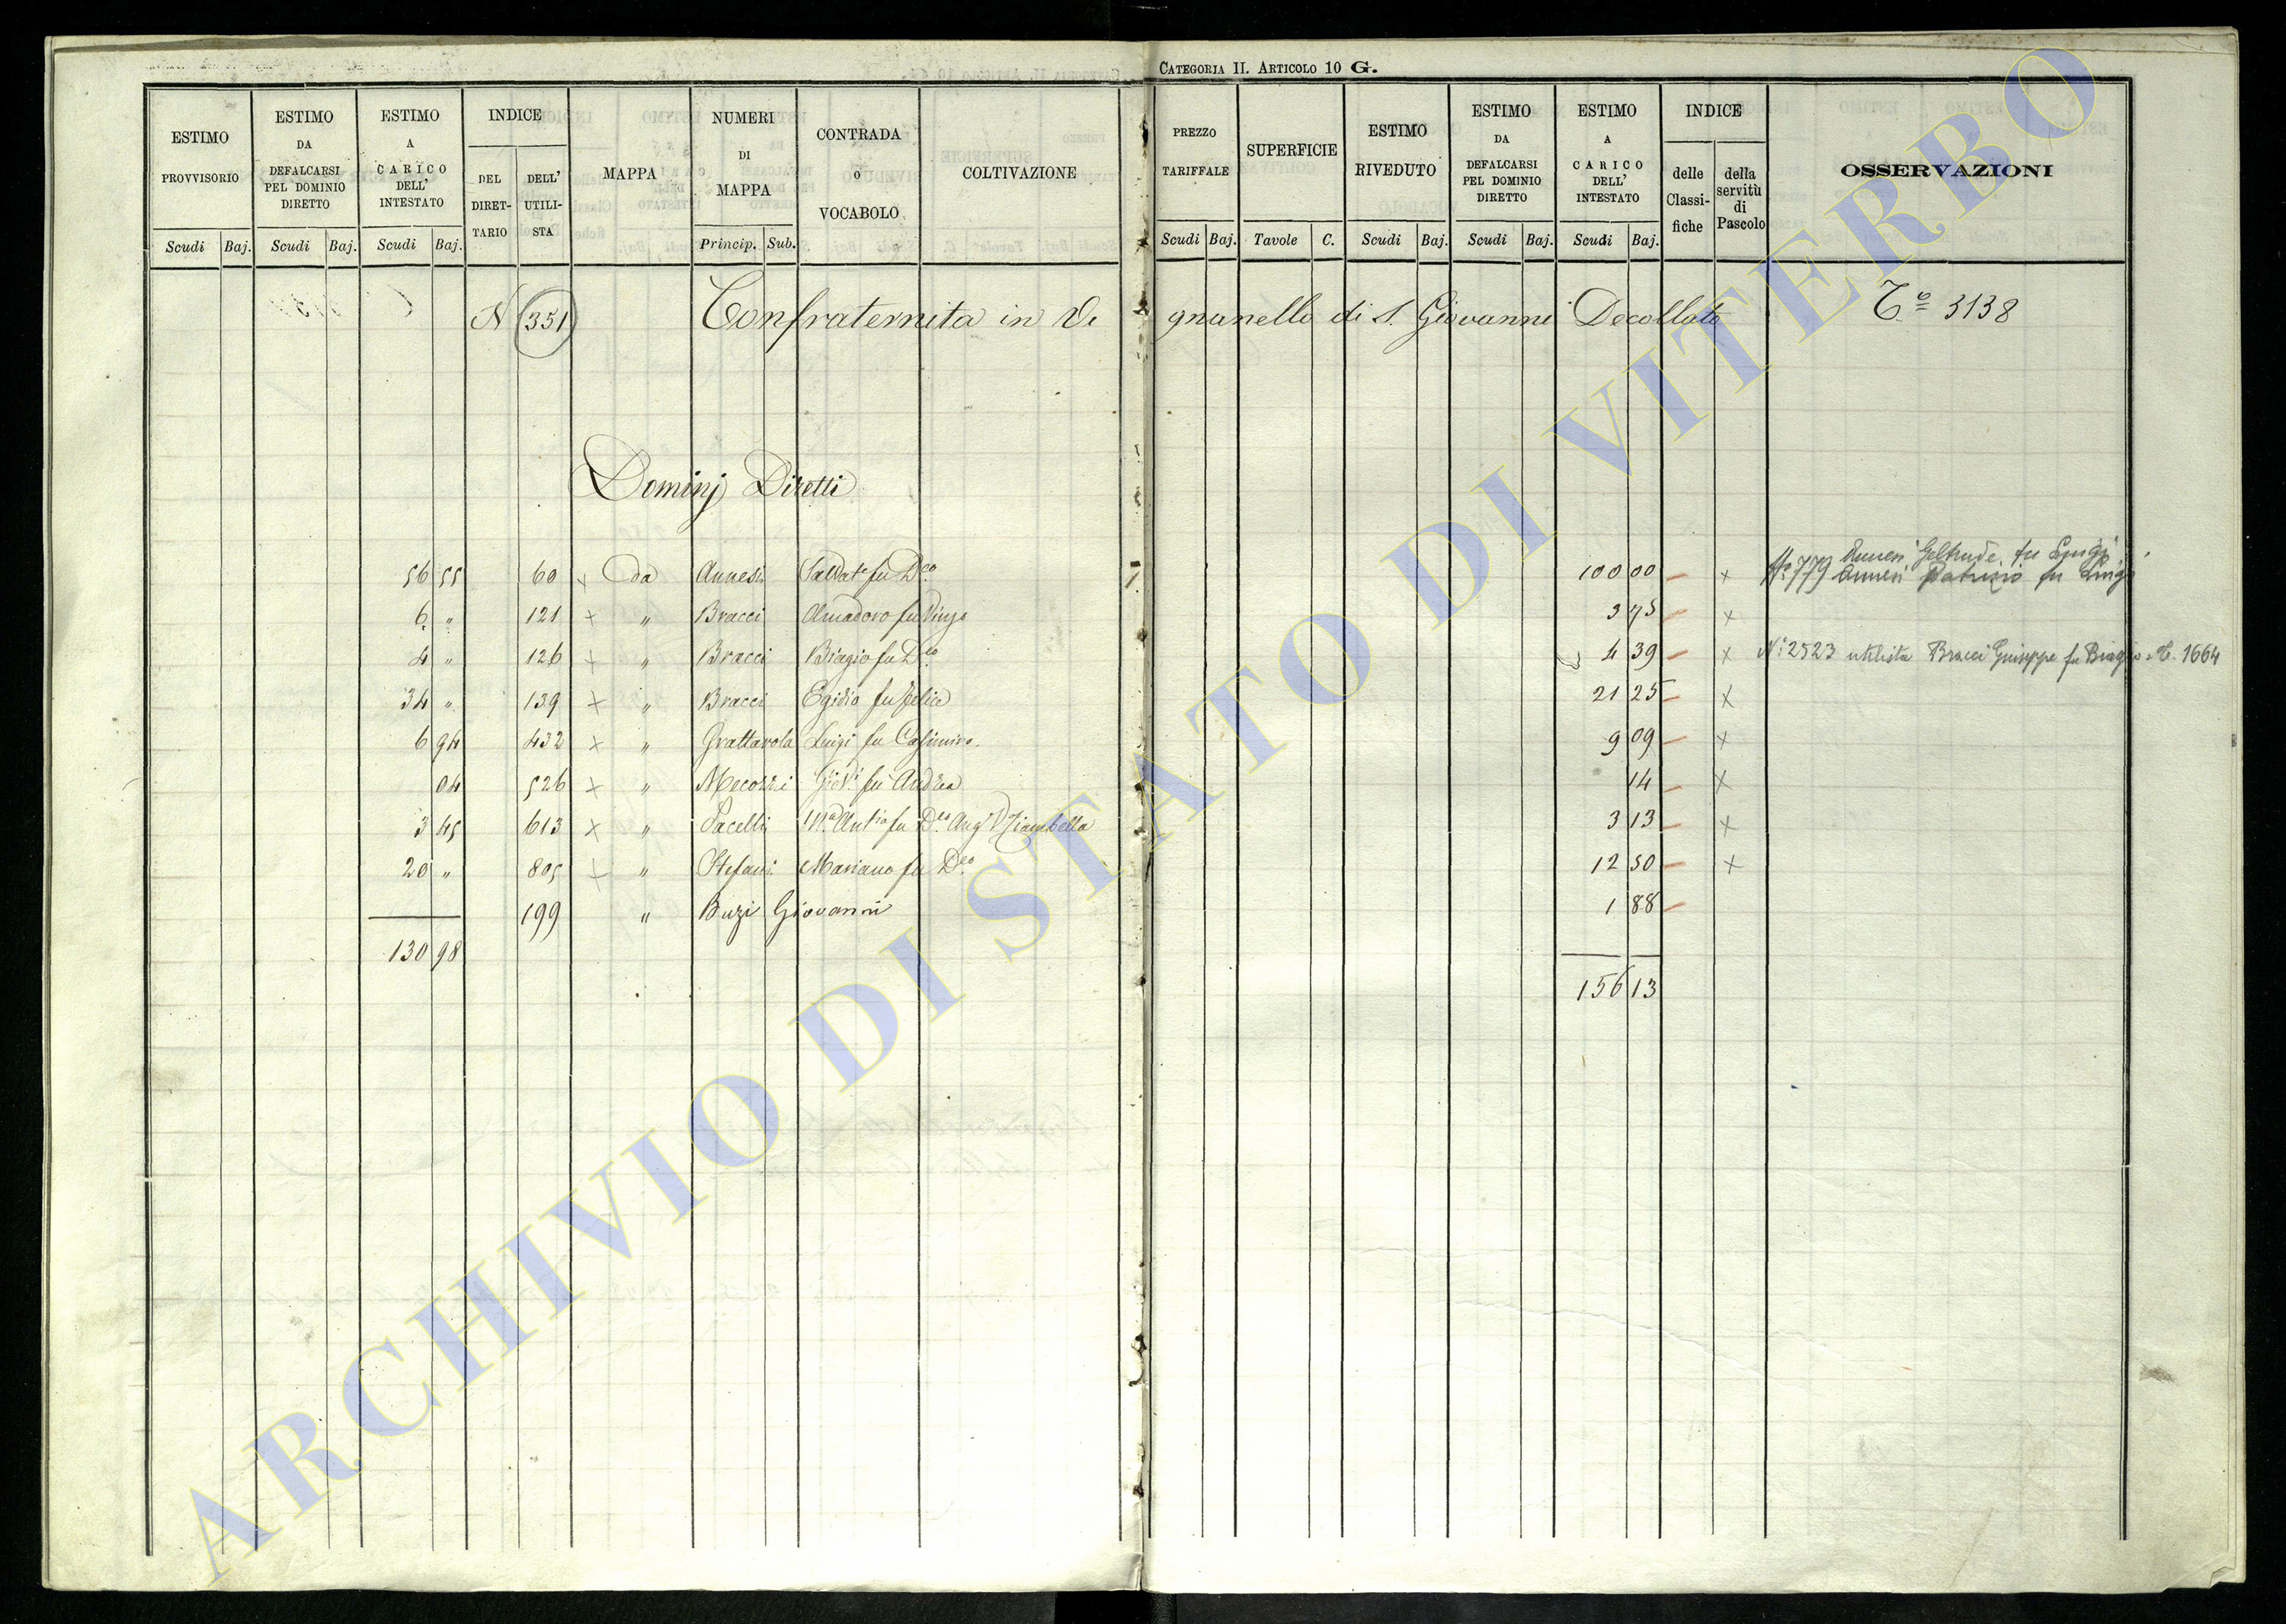 CATEGORIA II. ARTICOLO 10 G.
ESTIMO PROVVISORIO Scudi Baj.
ESTIMO DA DEFALCARSI PEL DOMINIO DIRETTO Scudi Baj.
ESTIMO A CARICO DELL' INTESTATO Scudi Baj.
INDICE DEL DIRET-TARIO DELL' UTILI-STA
MAPPA
NUMERI DI MAPPA Princip. Sub.
CONTRADA O VOCABOLO
COLTIVAZIONE
PREZZO TARIFFALE Scudi Baj.
SUPERFICIE Tavole C.
ESTIMO RIVEDUTO Scudi Baj.
ESTIMO DA DEFALCARSI PEL DOMINIO DIRETTO Scudi Baj.
ESTIMO A CARICO DELL' INTESTATO Scudi Baj.
INDICE delle Classi-fiche della servitù di Pascolo
OSSERVAZIONI
N 351 Confraternita in Vi gnanello di S. Giovanni Decollato T.o 3138
Dominj Diretti
Annesi Geltrude fu Luigi
56 55 60 x da Annesi Salvat.e fu D.co 100 00 — x N.o 779 Annesi Patrizio fu Luigi
6 " 121 x " Bracci Amadoro fu Ving.o 3 75 — x
4 " 126 x " Bracci Biagio fu D.co 4 39 — x N.o 2523 utilista Bracci Giuseppe fu Biagio T. 1664
34 " 139 x " Bracci Egidio fu Felice 21 25 — x
6 94 432 x " Grattarola Luigi fu Casimiro 9 09 — x
04 526 x " Mecozzi Giov.i fu Andrea 14 — x
3 45 613 x " Pacelli M.a Ant.ia fu D.co Ang.o V. Ziambella 3 13 — x
20 " 805 x " Stefani Mariano fu D.co 12 50 — x
199 " Buzi Giovanni 1 88 —
130 98
156 13
ARCHIVIO DI STATO DI VITERBO